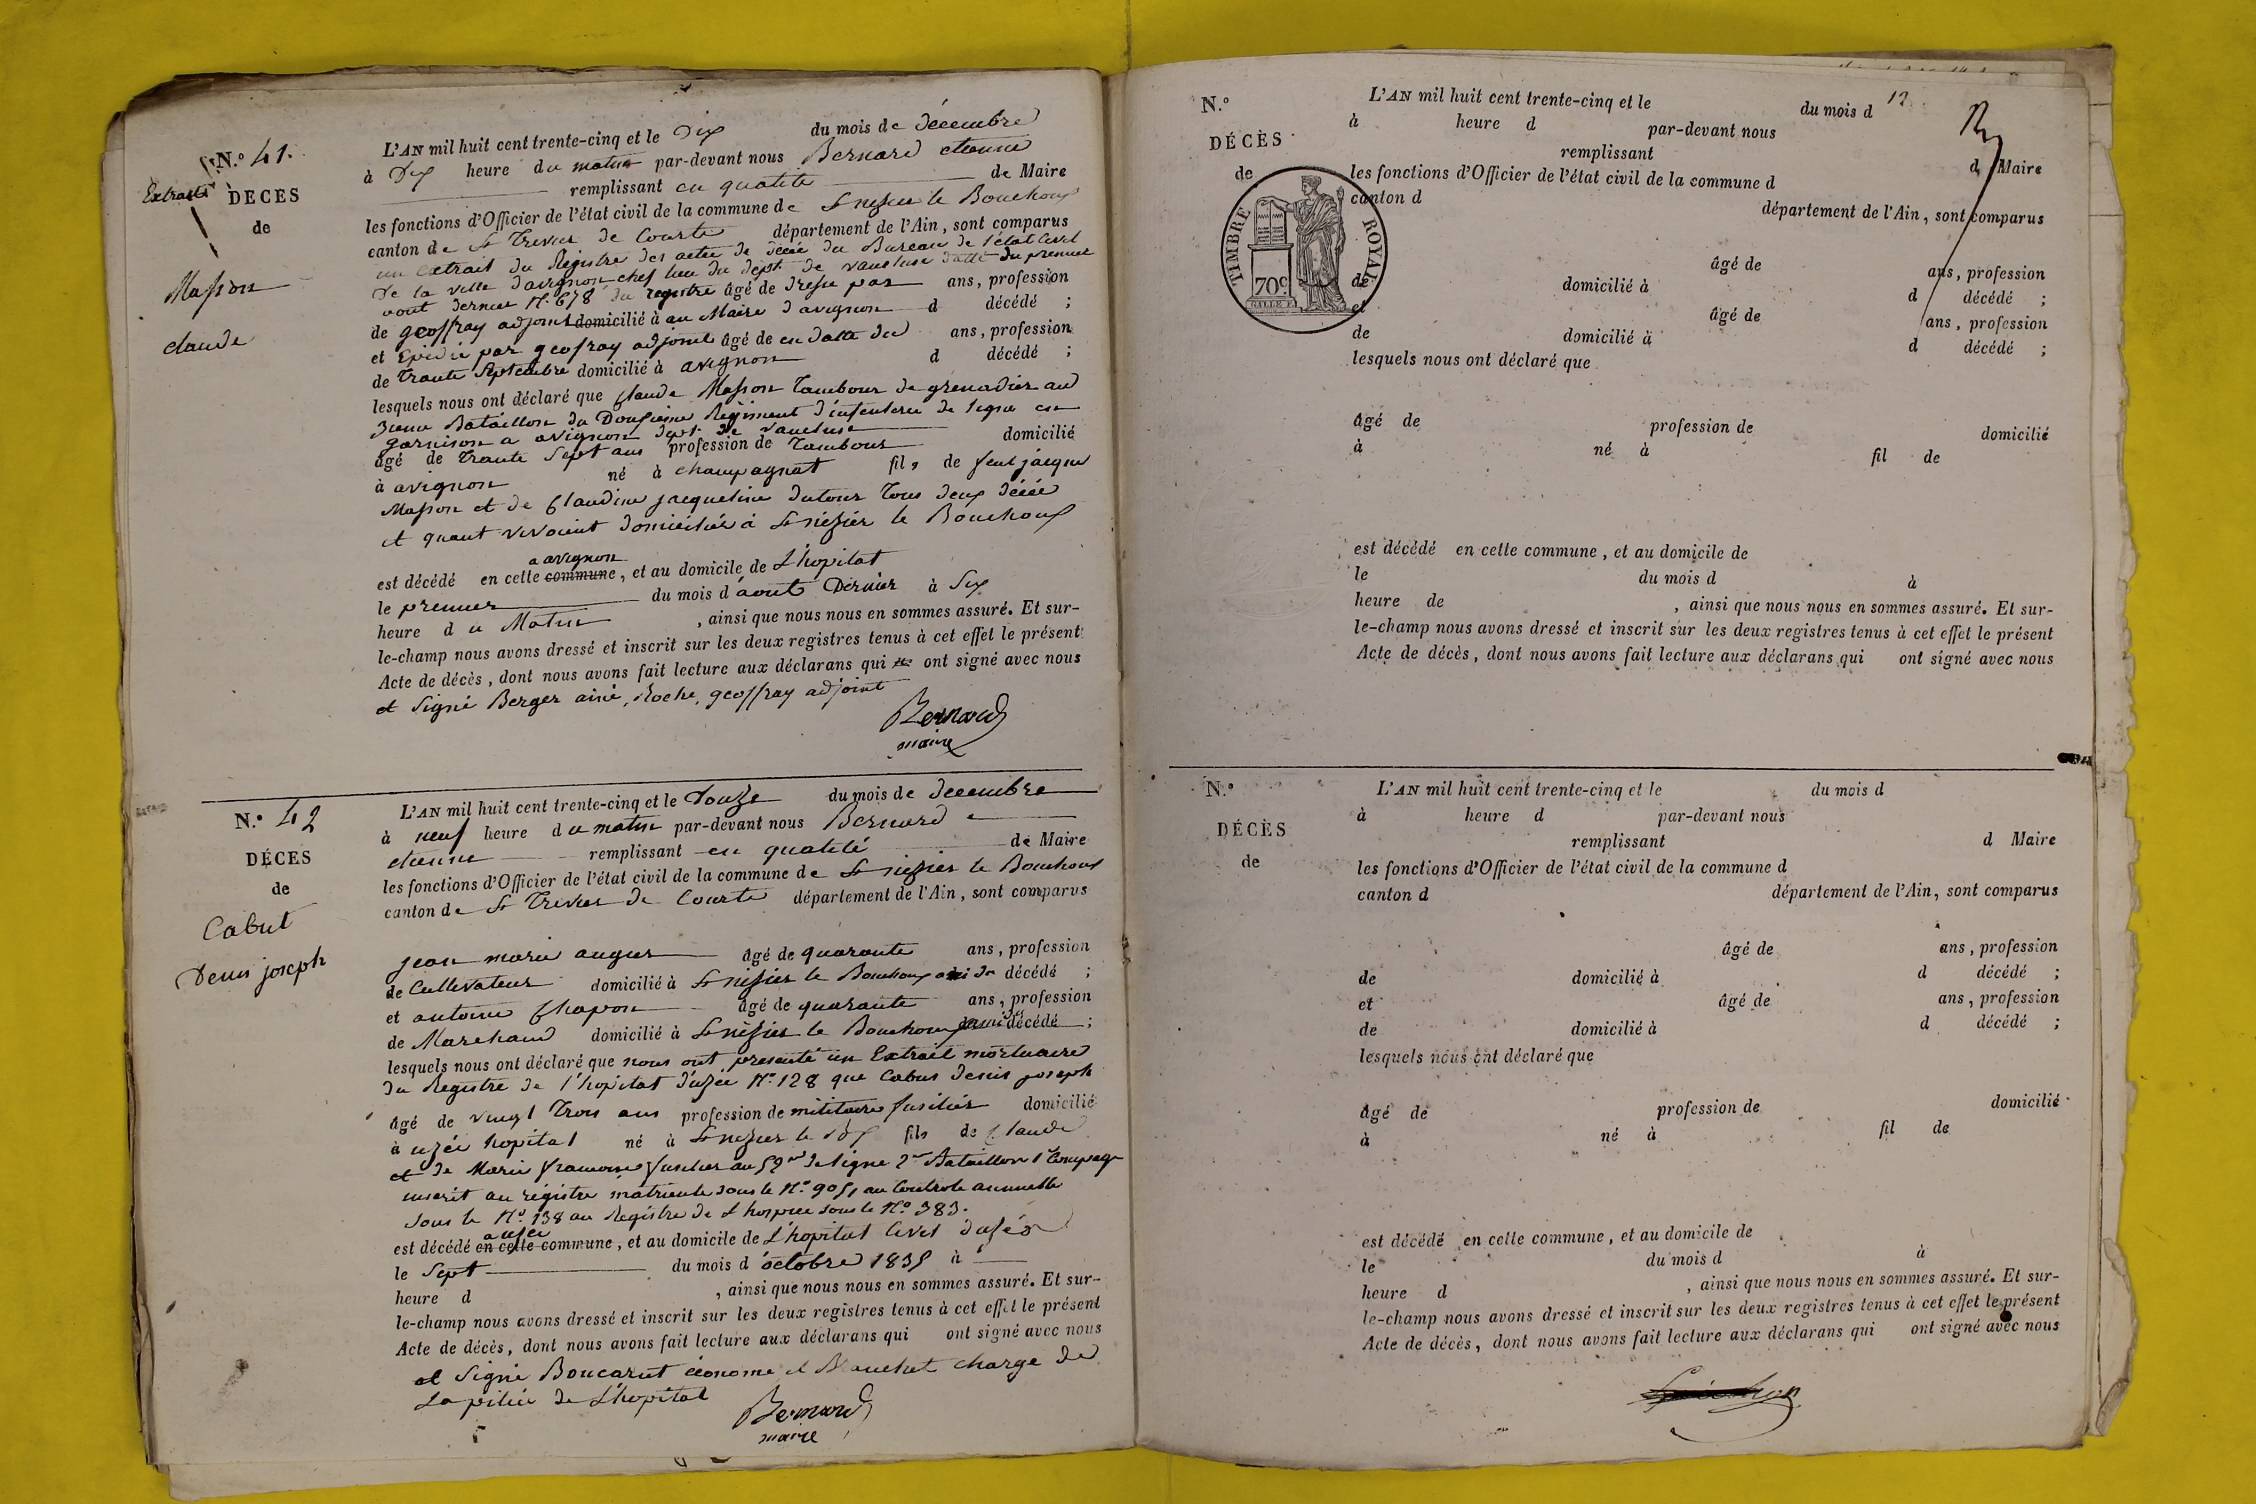 N.º 41.
Extrait
DECES
de
Masson
claude
L'AN mil huit cent trente-cinq et le Dix du mois de Décembre
à Dix heure du matin par-devant nous Bernard etienne
remplissant en qualité de Maire
les fonctions d'Officier de l'état civil de la commune de St nizier le Bouchoux
canton de St Trivier de Courte département de l'Ain, sont comparus
un extrait du Registre des actes de décée du Bureau de l'état Civil
De la ville d'avignon chef lieu du dept. de vaucluse datté du premier
aout dernier N.º 678 du registre âgé de dressé par ans, profession
de geoffray adjoint domicilié à au Maire d'avignon d décédé ;
et Expédié par geofray adjoint âgé de en datte du ans, profession
de Trante Septembre domicilié à avignon d décédé ;
lesquels nous ont déclaré que Claude Masson Tambour de grenadier au
3eme Bataillon du Douzieme Régiment d'infenterie de ligne en
garnison a avignon dept de vaucluse
âgé de Trante Sept ans profession de Tambour domicilié
à avignon né à champagnat fils de feut jacque
Masson et de Claudine jacqueline dutour Tous deux décée
et quant vivoient domiciliés à St nizier le Bouchoux
a avignon
est décédé en cette commune, et au domicile de L'hopital
le premier du mois d'aout Dernier à Six
heure du Matin , ainsi que nous nous en sommes assuré. Et sur-
le-champ nous avons dressé et inscrit sur les deux registres tenus à cet effet le présent
Acte de décès, dont nous avons fait lecture aux déclarans qui ont signé avec nous
et Signé Berger ainé, Roche, geoffray adjoint
Bernard
maire
N.º 42
DÉCES
de
Cabut
Denis joseph
L'AN mil huit cent trente-cinq et le Douze du mois de Décembre
à neuf heure du matin par-devant nous Bernard
etienne remplissant en qualité de Maire
les fonctions d'Officier de l'état civil de la commune de St nizier le Bouchoux
canton de St Trivier de Courte département de l'Ain, sont comparus
jean marie auger âgé de quarante ans, profession
de Cultivateur domicilié à St nizier le Bouchoux ami du décédé ;
et antoine Chapon âgé de quarante ans, profession
de Marchand domicilié à St nizier le Bouchoux ami du décédé ;
lesquels nous ont déclaré que nous ont presenté un Extrait mortuaire
du Registre de l'hopital d'uzée N.º 128 que Cabut denis joseph
âgé de vingt Trois ans profession de militaire fusilier domicilié
à uzée hopital né à St nizier le Bx fils de Claude
et de Marie francoise fusilier au 59me de ligne 2me Bataillon 1re Compagn
inscrit au régistre matricule sous le N.º 9051 au Controle annuelle
sous le N.º 138 au Registre de L'hospice sous le N.º 383.
a uzée
est décédé en cette commune, et au domicile de L'hopital Civel d'uzée
le Sept du mois d'octobre 1835 à
heure d , ainsi que nous nous en sommes assuré. Et sur-
le-champ nous avons dressé et inscrit sur les deux registres tenus à cet effet le présent
Acte de décès, dont nous avons fait lecture aux déclarans qui ont signé avec nous
et Signé Boucarut économe et Blanchet charge de
La police de L'hopital
Bernard
maire
12
N.º
DÉCÈS
de
TIMBRE ROYAL
70 C.
L'AN mil huit cent trente-cinq et le du mois d
à heure d par-devant nous
remplissant d Maire
les fonctions d'Officier de l'état civil de la commune d
canton d département de l'Ain, sont comparus
âgé de ans, profession
de domicilié à d décédé ;
et âgé de ans, profession
de domicilié à d décédé ;
lesquels nous ont déclaré que
âgé de profession de domicilié
à né à fil de
est décédé en cette commune, et au domicile de
le du mois d à
heure de , ainsi que nous nous en sommes assuré. Et sur-
le-champ nous avons dressé et inscrit sur les deux registres tenus à cet effet le présent
Acte de décès, dont nous avons fait lecture aux déclarans qui ont signé avec nous
N.º
DÉCÈS
de
L'AN mil huit cent trente-cinq et le du mois d
à heure d par-devant nous
remplissant d Maire
les fonctions d'Officier de l'état civil de la commune d
canton d département de l'Ain, sont comparus
âgé de ans, profession
de domicilié à d décédé ;
et âgé de ans, profession
de domicilié à d décédé ;
lesquels nous ont déclaré que
âgé de profession de domicilié
à né à fil de
est décédé en cette commune, et au domicile de
le du mois d à
heure d , ainsi que nous nous en sommes assuré. Et sur-
le-champ nous avons dressé et inscrit sur les deux registres tenus à cet effet le présent
Acte de décès, dont nous avons fait lecture aux déclarans qui ont signé avec nous